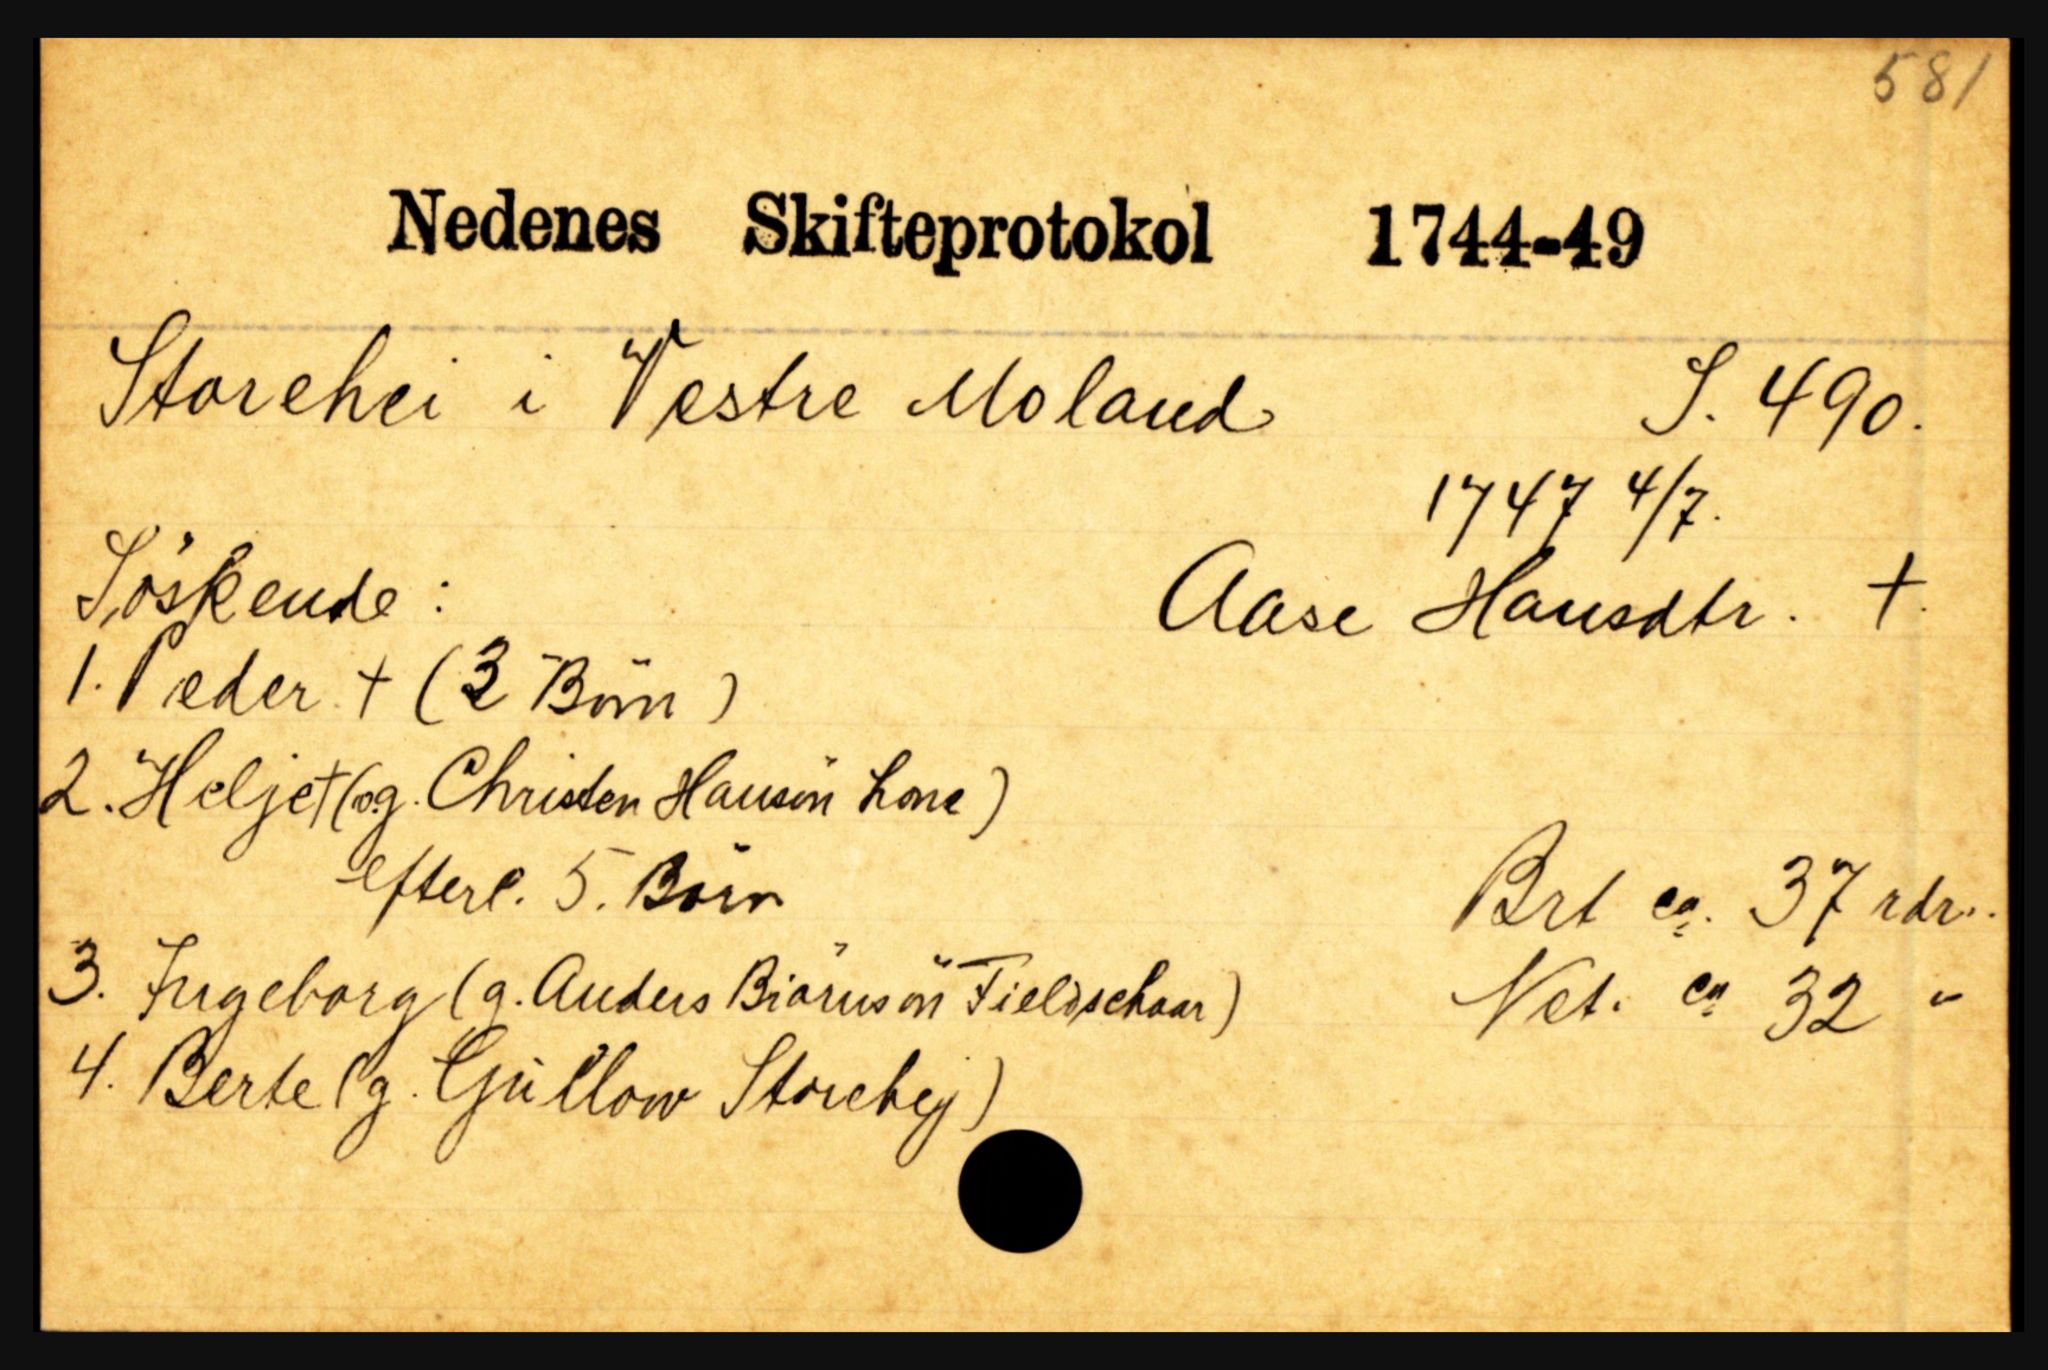 581
Nedenes Skifteprotokol 1744-49
Storehei i Vestre Moland S. 490.
1747 4/7.
Söskende: Aase Hansdtr. +.
1. Peder + (3 Börn)
2. Helje + (og. Christen Hansön Lone)
efterl. 5. Börn Brt ca. 37 rdr..
3. Ingeborg (g. Anders Biörnsön Fieldschaar) Net. ca 32 "
4. Berte (g. Gullow Storehej)